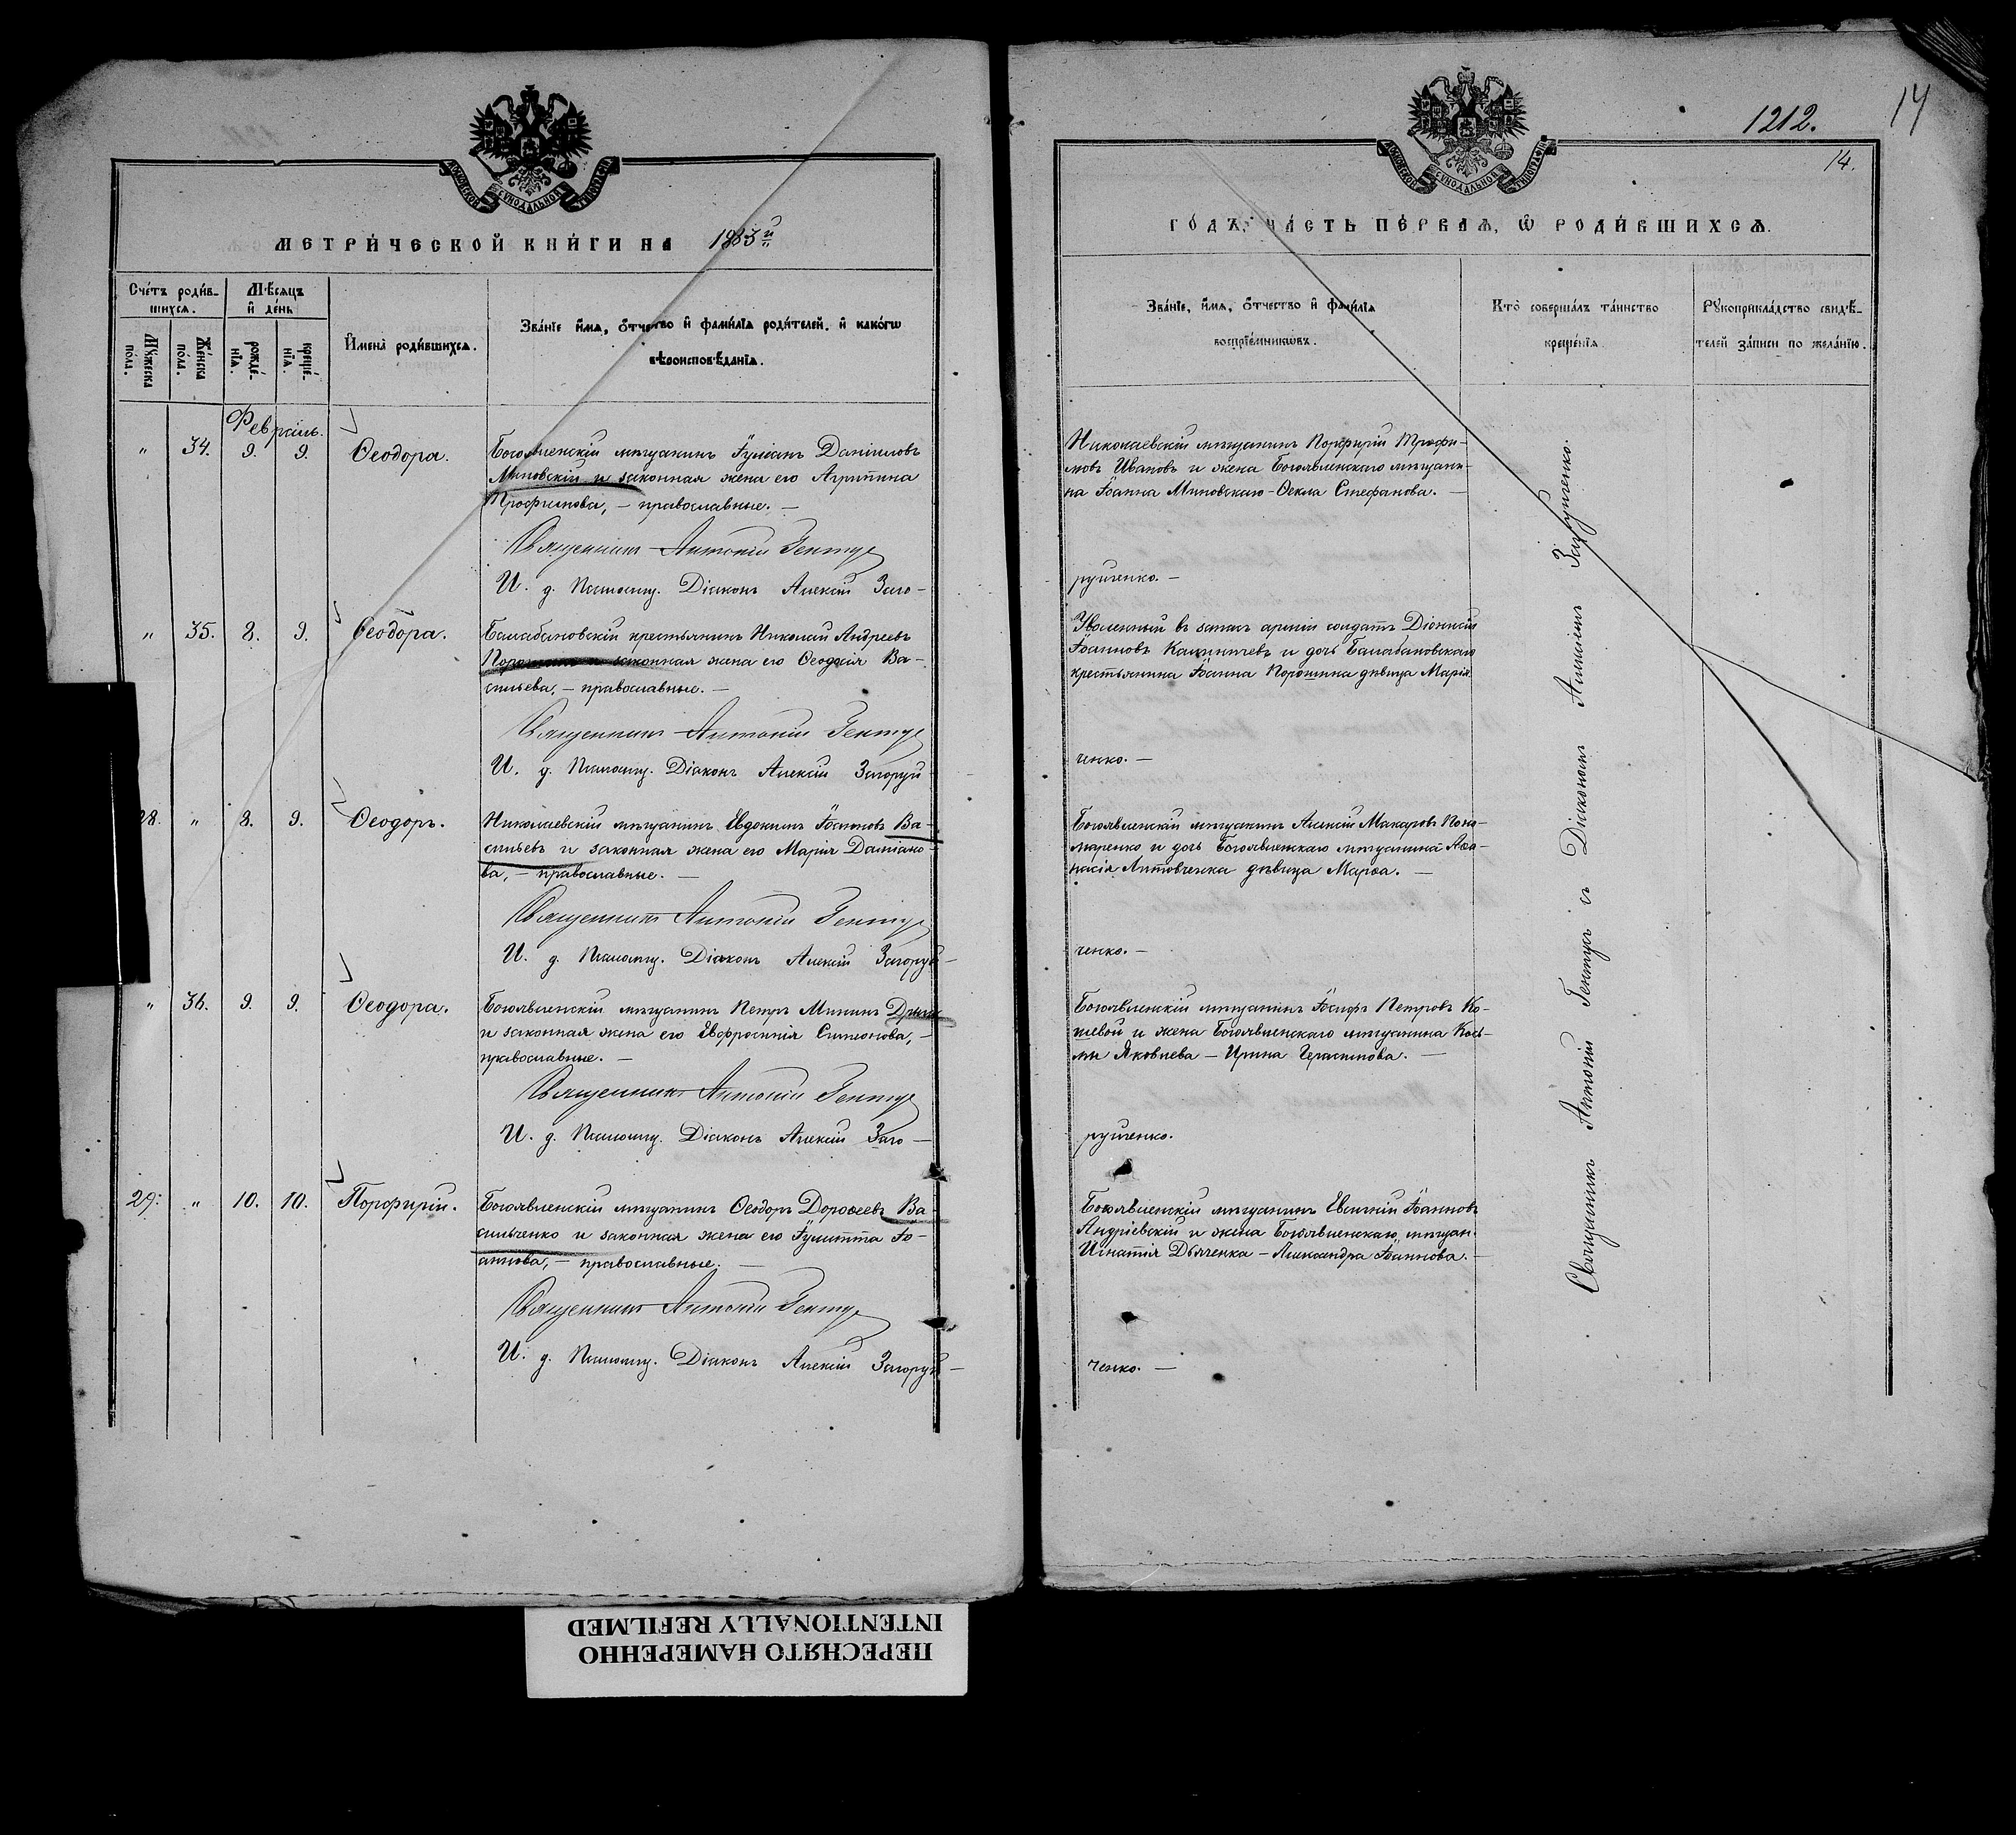 МОСКОВСКОЙ СѴНОДАЛЬНОЙ ТѴПОГРАФІИ
МЕТРИ́ЧЕСКОЙ КНИ́ГИ НА 1883й
Сче́тъ роди́в-
шихсѧ.
Мѣ́сѧцъ
и҆ де́нь
Мꙋ́жеска
по́ла.
Же́нска
по́ла.
рожде́-
нїѧ.
креще́-
нїѧ.
И҆мена̀ роди́вшихсѧ.
Зва́нїе и҆́мѧ, ѻ҆́тчество и҆ фамѝлїѧ роди́телей, и҆ како́гѡ
вѣроисповѣ́данїѧ.
Февраль.
" 34. 9. 9. Ѳеодора.
Богоявленскій мѣщанинъ Іуліанъ Даніиловъ
Миповскій и законная жена его Агрипина
Трофимова, – православные. –
Священникъ Антоній Гентуе
И. д. Псаломщ. Діаконъ Алексій Заго-
" 35. 8. 9. Ѳеодора.
Балабановскій крестьянинъ Николай Андреевъ
Порошинъ и законная жена его Ѳеодосія Ва-
сильева, – православные. –
Священникъ Антоній Гентуе
И. д. Псаломщ. Діаконъ Алексій Загоруй
28. " 8. 9. Ѳеодоръ.
Николаевскій мѣщанинъ Евдокимъ Іоанновъ Ва-
сильевъ и законная жена его Марія Даміано-
ва, – православные. –
Священникъ Антоній Гентуе
И. д. Псаломщ. Діаконъ Алексій Загоруй-
" 36. 9. 9. Ѳеодора.
Богоявленскій мѣщанинъ Петръ Мининъ
и законная жена его Евфросинія Симеонова, –
православные. –
Священникъ Антоній Гентуе
И. д. Псаломщ. Діаконъ Алексій Заго –
29. " 10. 10. Порфирій.
Богоявленскій мѣщанинъ Ѳеодоръ Дороѳеевъ Ва-
сильченко и законная жена его Іулитта Іо-
аннова, – православные. –
Священникъ Антоній Гентуе
И. д. Псаломщ. Діаконъ Алексій Загоруй –
1212. 14
14.
МОСКОВСКОЙ СѴНОДАЛЬНОЙ ТѴПОГРАФІИ
ГО́ДЪ, ЧА́СТЬ ПЕ́РВАѦ, Ѡ҆ РОДИ́ВШИХСѦ.
Зва́нїе, и҆́мѧ, ѻ҆́тчество и҆ фамѝлїѧ
воспрїе́мникѡвъ.
Кто̀ соверша́лъ та́инство
креще́нїѧ.
Рꙋкоприкла́дство свидѣ́-
телей за́писи по жела́нїю.
Николаевскій мѣщанинъ Порфирій Трофи-
мовъ Ивановъ и жена Богоявленскаго мѣщани-
на Іоанна Миповскаго – Ѳекла Стефанова. –
руйченко. –
Уволенный въ запасъ арміи солдатъ Діонисій
Іоанновъ Калиничевъ и дочь Балабановскаго
крестьянина Іоанна Порошина дѣвица Марія.
ченко. –
Богоявленскій мѣщанинъ Алексій Макаровъ Поно-
маренко и дочь Богоявленскаго мѣщанина Аѳа-
насія Литовченка дѣвица Марѳа. –
ченко. –
Богоявленскій мѣщанинъ Іосифъ Петровъ Ко-
шевой и жена Богоявленскаго мѣщанина Кось-
мы Яковлева – Ирина Герасимова. –
руйченко.
Богоявленскій мѣщанинъ Евсигній Іоанновъ
Андріевскій и жена Богоявленскаго мѣщан.
Игнатія Дьяченка – Александра Іоаннова. –
ченко. –
Священникъ Антоній Гентуе съ Діакономъ Алексіемъ Загоруйченко.
ПЕРЕСНЯТО НАМЕРЕННО
INTENTIONALLY REFILMED